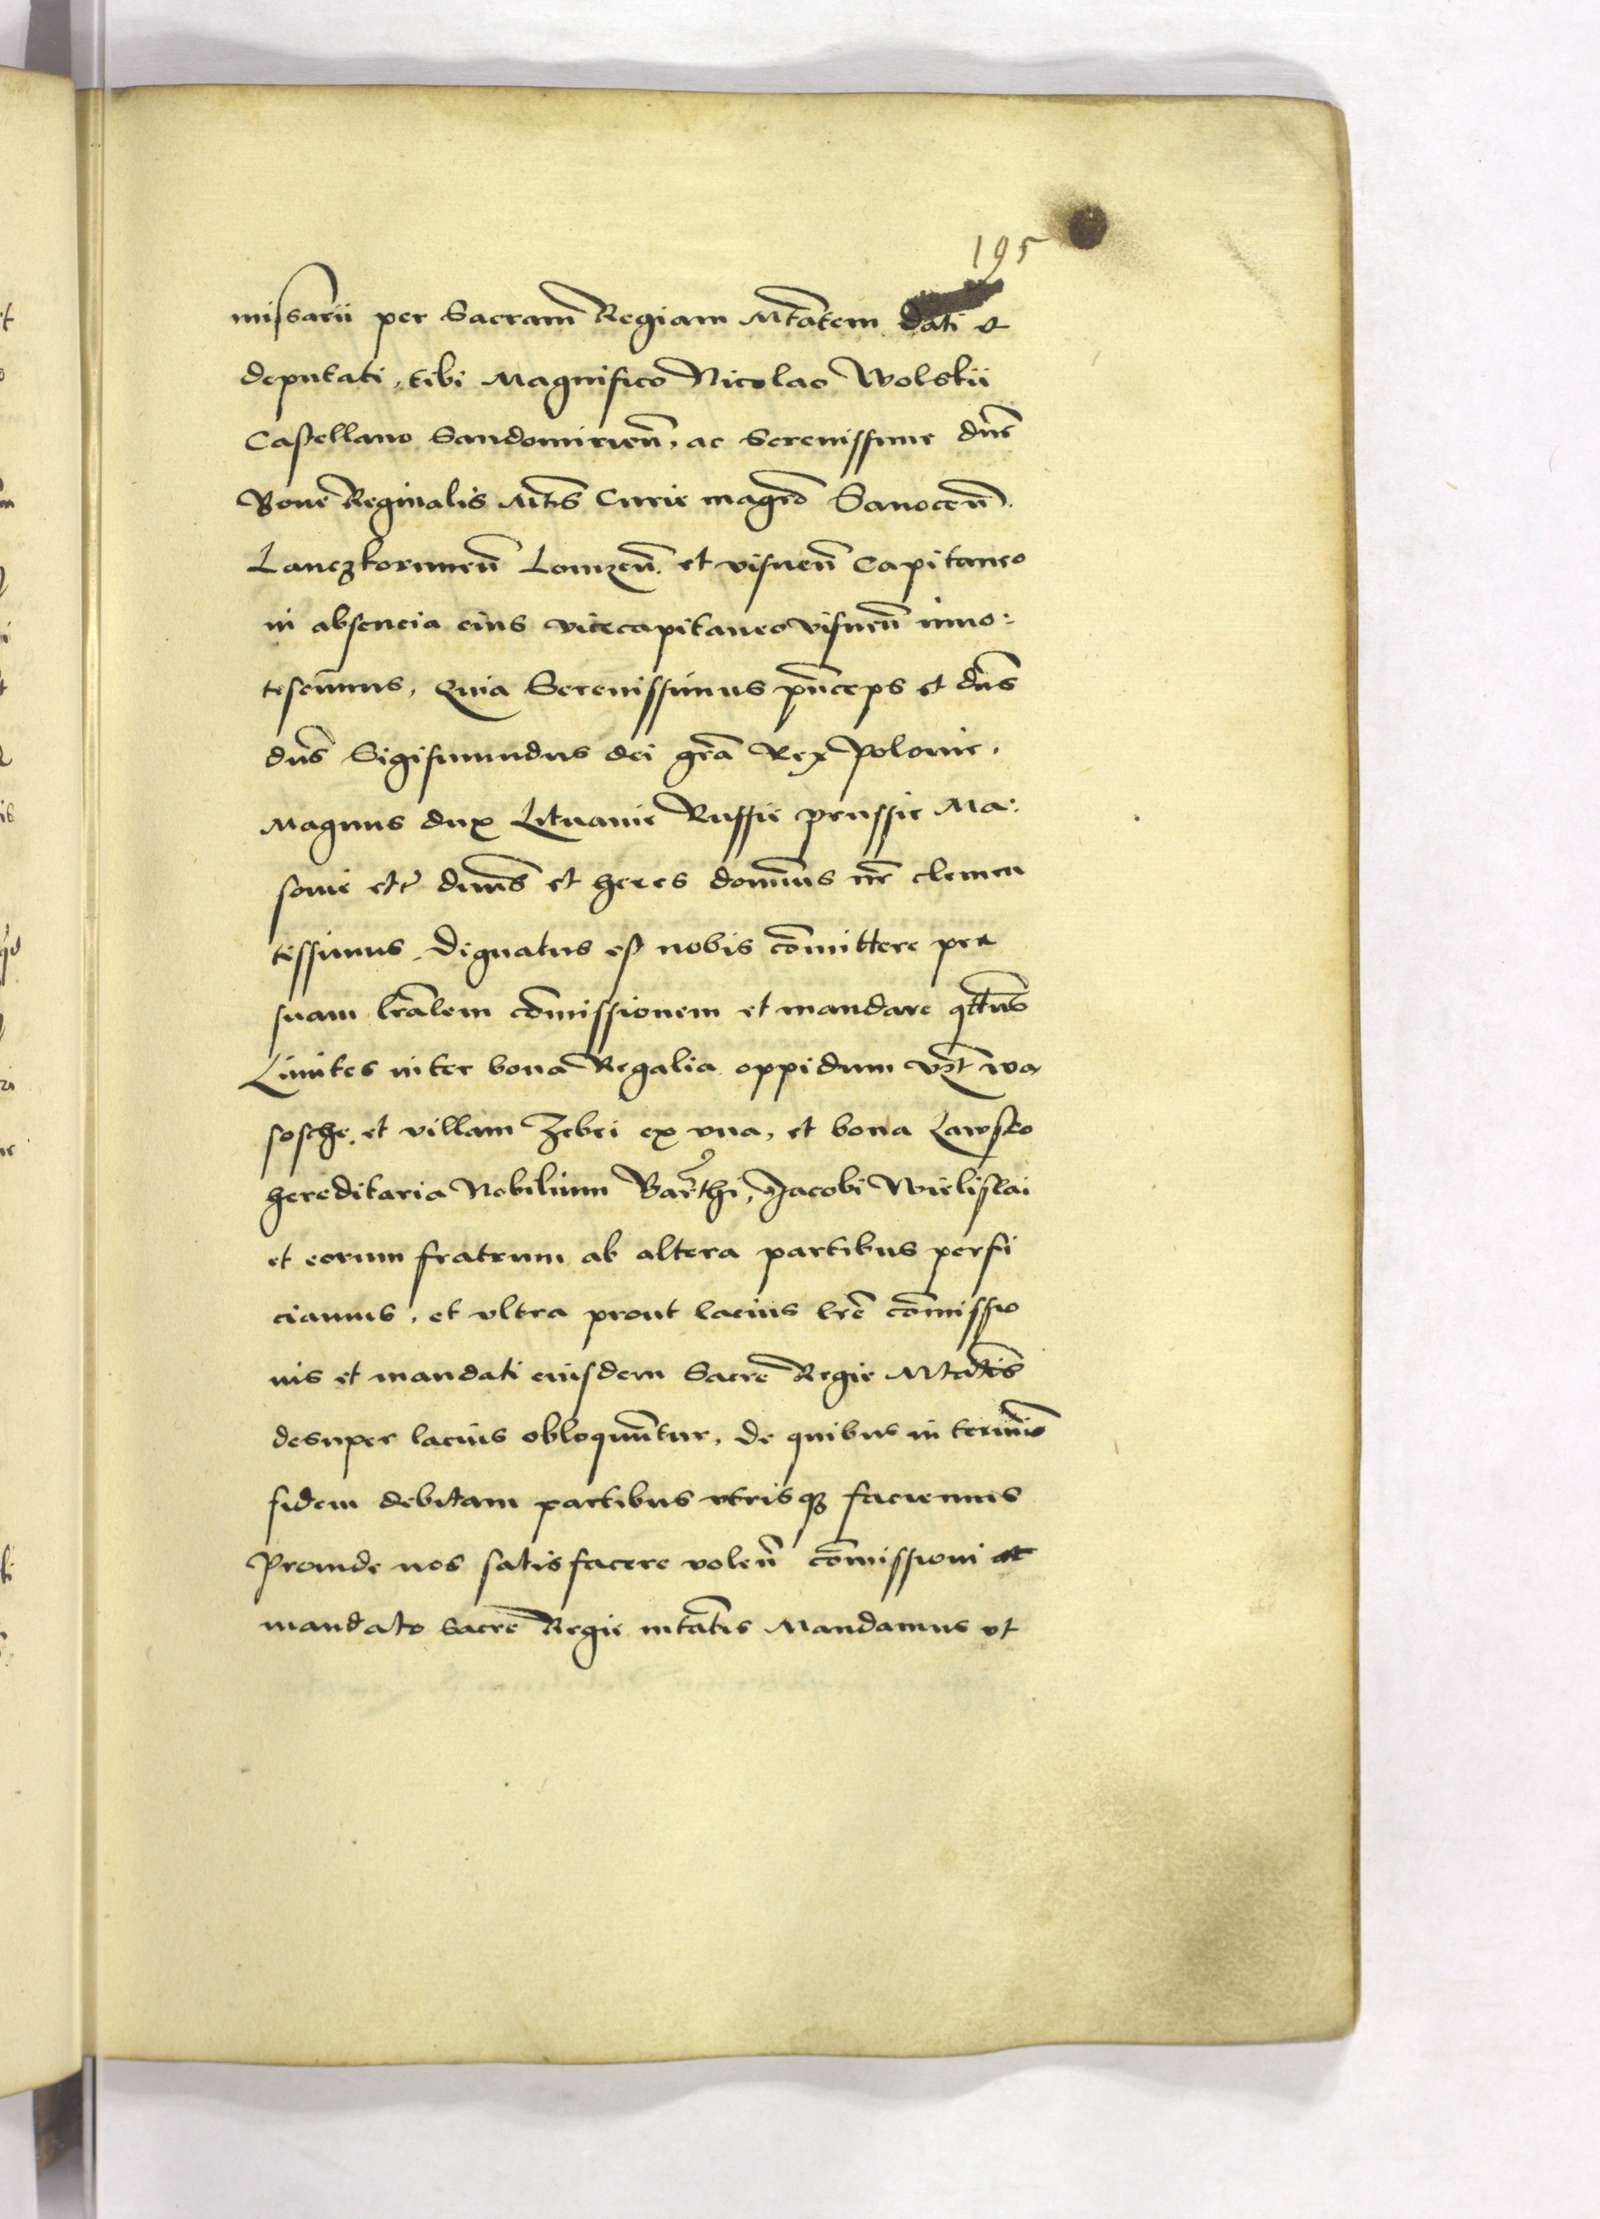 195
missarii per Sacram Regiam Mtatem dati et
deputati, tibi Magnifico Nicolao Wolskii
Castellano Sandomirien̄, ac Serenissime dn̄e
Bone Reginalis Mtīs Curie magrō Sanocen̄.
Lanczkorunen̄ Lomzen̄. et visnen̄ Capitaneo
in absencia eius vicecapitaneo visnen̄ inno:
tescimus, Quia Serenissimus pn̄ceps et dn̄s
dn̄s Sigismundus dei grā Rex Polonie,
Magnus dux Lituanie Russie prussie Ma:
sovie etc̄ dn̄us et heres domin̄us nr̄ clemen
tissimus, dignatus est nobis cōmittere per
suam lrālem cōmissionem et mandare qt̄tus
Limites inter bona Regalia oppidum vz̄t wa
sosche, et villam Zebri ex vna, et bona Lawsko
hereditaria Nobilium Barthi, Jacobi Wielislai
et eorum fratrum ab altera partibus perfi
ciamus, et vltra prout lacius lrē cōmissio
nis et mandati eiusdem Sacrē Regie Mtatis
desuper lacius obloquūtur, de quibus in terminō
fidem debitam partibus vtrisqȝ faciemus
Proinde nos satisfacere volen̄ cōmissioni et
mandato Sacrē Regie mtātis Mandamus vt